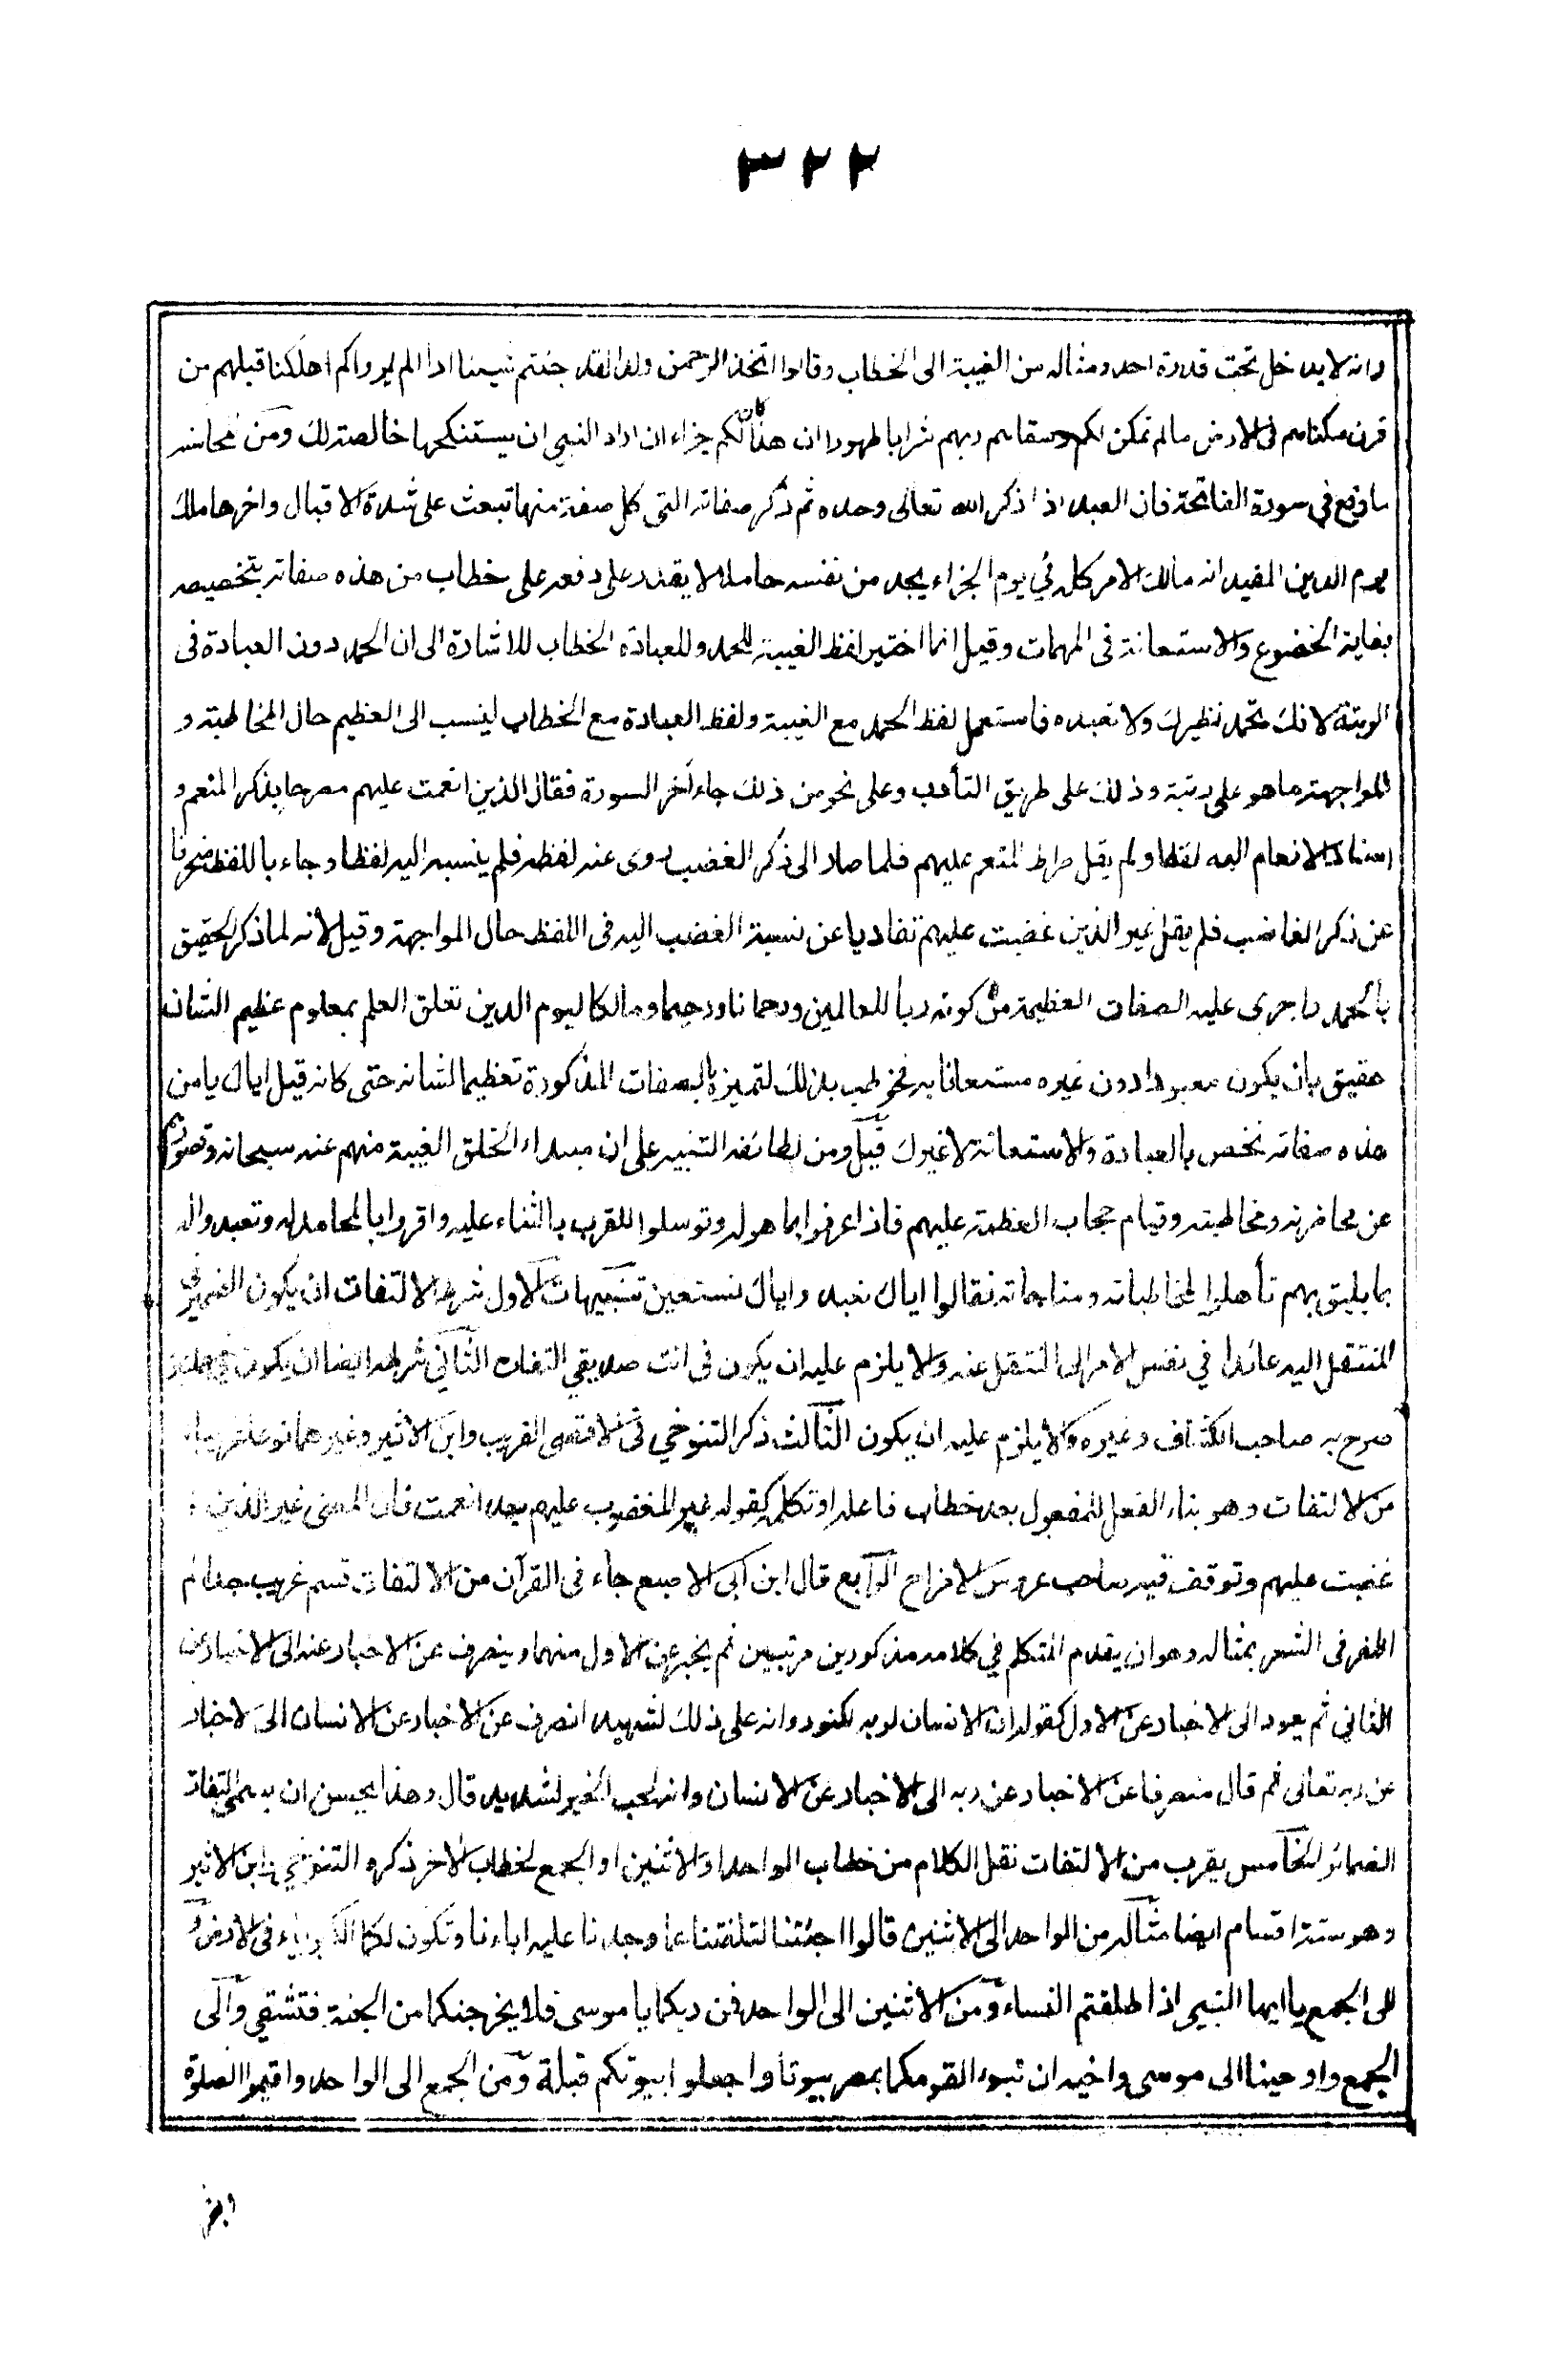 ٣٢٢
وانه لا يدخل تحت قدرة احد ومثاله من الغيبة الى الخطاب وقالوا اتخذ الرحمن ولدا لقد جئتم شيئا ادا الم يروا كم اهلكنا قبلهم من
قرن مكناهم فى الارض ما لم نمكن لكم وسقاهم ربهم شرابا طهورا ان هذا كان لكم جزاء ان اراد النبي ان يستنكحها خالصة لك ومن محاسنه
ما وقع في سورة الفاتحة فان العبد اذا ذكر الله تعالى وحده ثم ذكر صفاته التى كل صفة منها تبعث على شدة الاقبال واخرها ملك
يوم الدين المفيد انه مالك الامر كله في يوم الجزاء يجد من نفسه حاملا لا يقدر على دفعه على خطاب من هذه صفاته بتخصيصه
بغاية الخضوع والاستعانة فى المهمات وقيل انما اختير لفظ الغيبة للحمد وللعبادة الخطاب للاشارة الى ان الحمد دون العبادة فى
الرتبة لانك تحمد نظيرك ولا تعبده فاستعمل لفظ الحمد مع الغيبة ولفظ العبادة مع الخطاب لينسب الى العظيم حال المخاطبة و
المواجهة ما هو على رتبة وذلك على طريق التأدب وعلى نحو من ذلك جاء آخر السورة فقال الذين انعمت عليهم مصرحا بذكر المنعم و
اسناد الانعام اليه لفظا ولم يقل صراط المنعم عليهم فلما صار الى ذكر الغضب روى عنه لفظه فلم ينسبه اليه لفظا وجاء باللفظ منحرفا
عن ذكر الغاضب فلم يقل غير الذين غضبت عليهم تفاديا عن نسبة الغضب اليه فى اللفظ حال المواجهة وقيل لانه لما ذكر الحقيق
بالحمد واجرى عليه الصفات العظيمة من كونه ربا للعالمين ورحمانا ورحيما ومالكا ليوم الدين تعلق العلم بمعلوم عظيم الشان
حقيق بان يكون معبودا دون غيره مستعانا به فخوطب بذلك لتميزه بالصفات المذكورة تعظيما لشانه حتى كانه قيل اياك يا من
هذه صفاته نخص بالعبادة والاستعانة لا غيرك قيل ومن لطائفه التنبيه على ان مبداء الخلق الغيبة منهم عنه سبحانه وقصورهم
عن محاضرته ومخاطبته وقيام حجاب العظمة عليهم فاذا عرفوا بما هو له وتوسلوا للقرب بالثناء عليه واقروا بالمحامد له وتعبدوا له
بما يليق بهم تأهلوا لمخاطباته ومناجاته فقالوا اياك نعبد واياك نستعين تنبيهات الاول شرط الالتفات ان يكون الضمير في
المنتقل اليه عائدا في نفس الامر الى المنتقل عنه والا يلزم عليه ان يكون فى انت صديقي التفات الثاني شرطه ايضا ان يكون في جملتين
صرح به صاحب الكشاف وغيره والا يلزم عليه ان يكون الثالث ذكر التنوخي فى الاقصى القريب وابن الاثير وغيرهما نوعا غريبا
من الالتفات وهو بناء الفعل للمفعول بعد خطاب فاعله او تكلمه كقوله غير المغضوب عليهم بعد انعمت فان المعنى غير الذين
غضبت عليهم وتوقف فيه صاحب عروس الافراح الرابع قال ابن ابى الاصبع جاء فى القرآن من الالتفات قسم غريب جدا لم
اظفر فى الشعر بمثاله وهو ان يقدم المتكلم في كلامه مذكورين مرتبين ثم يخبر عن الاول منهما وينصرف عن الاخبار عنه الى الاخبار عن
الثاني ثم يعود الى الاخبار عن الاول كقوله ان الانسان لربه لكنود وانه على ذلك لشهيد انصرف عن الاخبار عن الانسان الى الاخبار
عن ربه تعالى ثم قال منصرفا عن الاخبار عن ربه الى الاخبار عن الانسان وانه لحب الخير لشديد قال وهذا يحسن ان يسمى التفات
الضمائر الخامس يقرب من الالتفات نقل الكلام من خطاب الواحد او الاثنين او الجمع لخطاب الاخر ذكره التنوخي وابن الاثير
وهو ستة اقسام ايضا مثاله من الواحد الى الاثنين قالوا اجئتنا لتلفتنا عما وجدنا عليه اباءنا وتكون لكما الكبرياء فى الارض و
الى الجمع يا ايها النبي اذا طلقتم النساء ومن الاثنين الى الواحد فمن ربكما يا موسى فلا يخرجنكما من الجنة فتشقي والى
الجمع واوحينا الى موسى واخيه ان تبوء القومكما بمصر بيوتا واجعلوا بيوتكم قبلة ومن الجمع الى الواحد واقيموا الصلوة